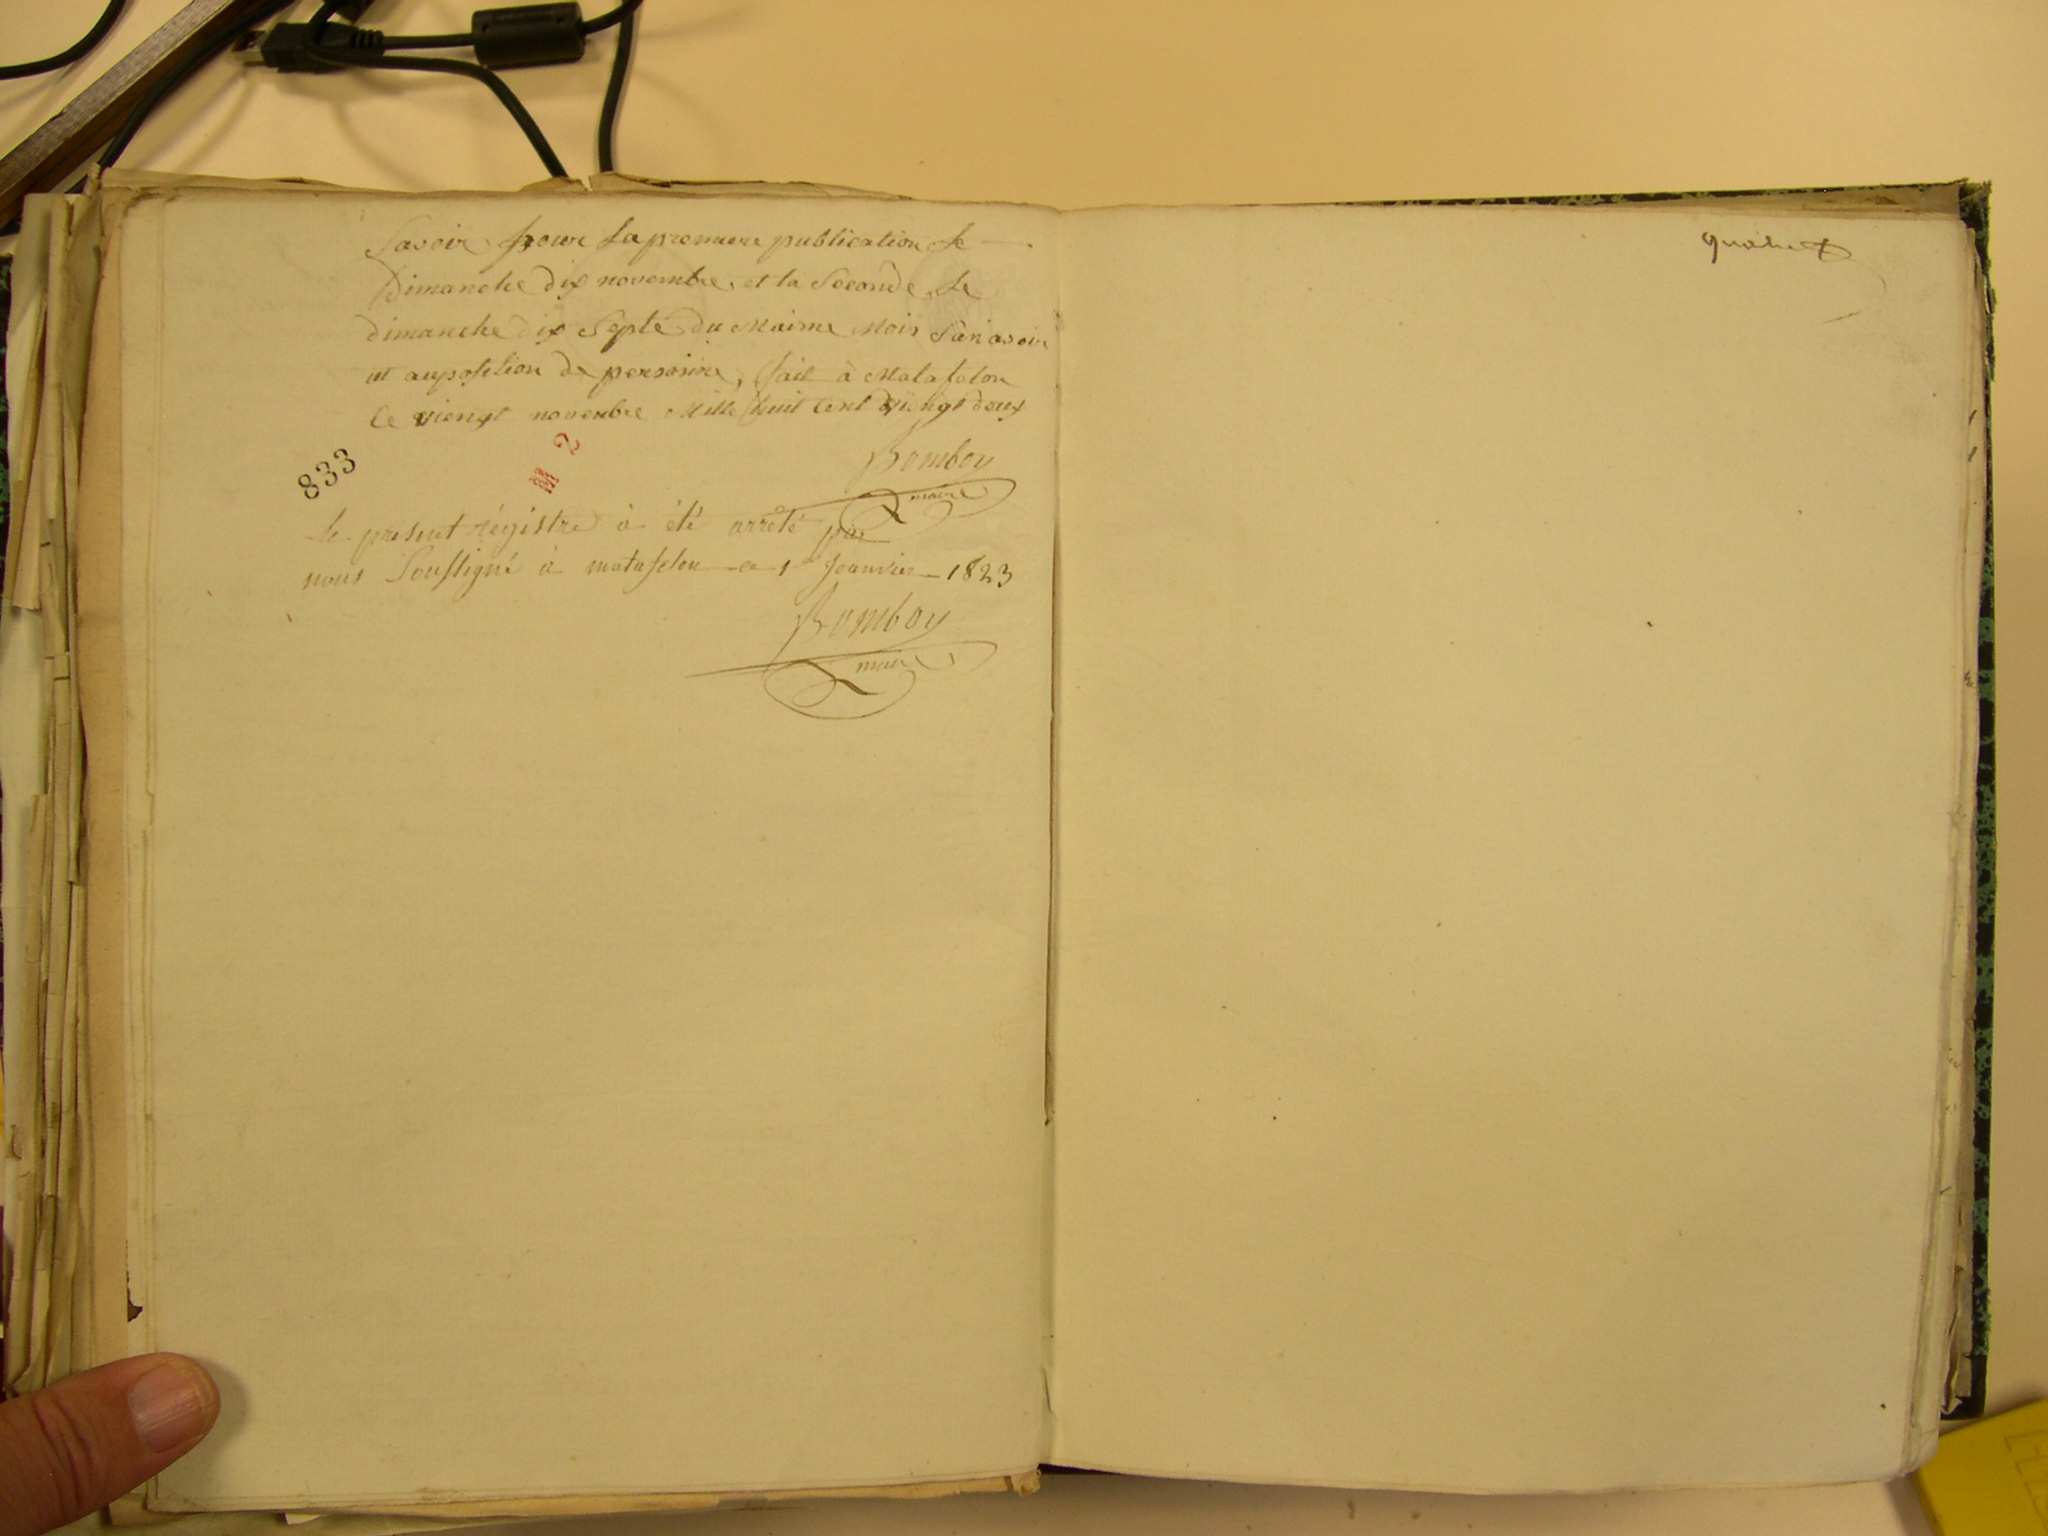 Savoir pour la premiere publication le
Dimanche dix novembre, et la Seconde, le
dimanche dix Septe du Maime Mois San avoir
ut auposition de persoinne, fait à Matafelon
le viengt novenbre Mille huit Cent viengt deux
Bomboy
maire
833
M 2
le present régistre à été arrêté par
nous Soussigné à matafelon ce 1er Janvier 1823
Bomboy
maire